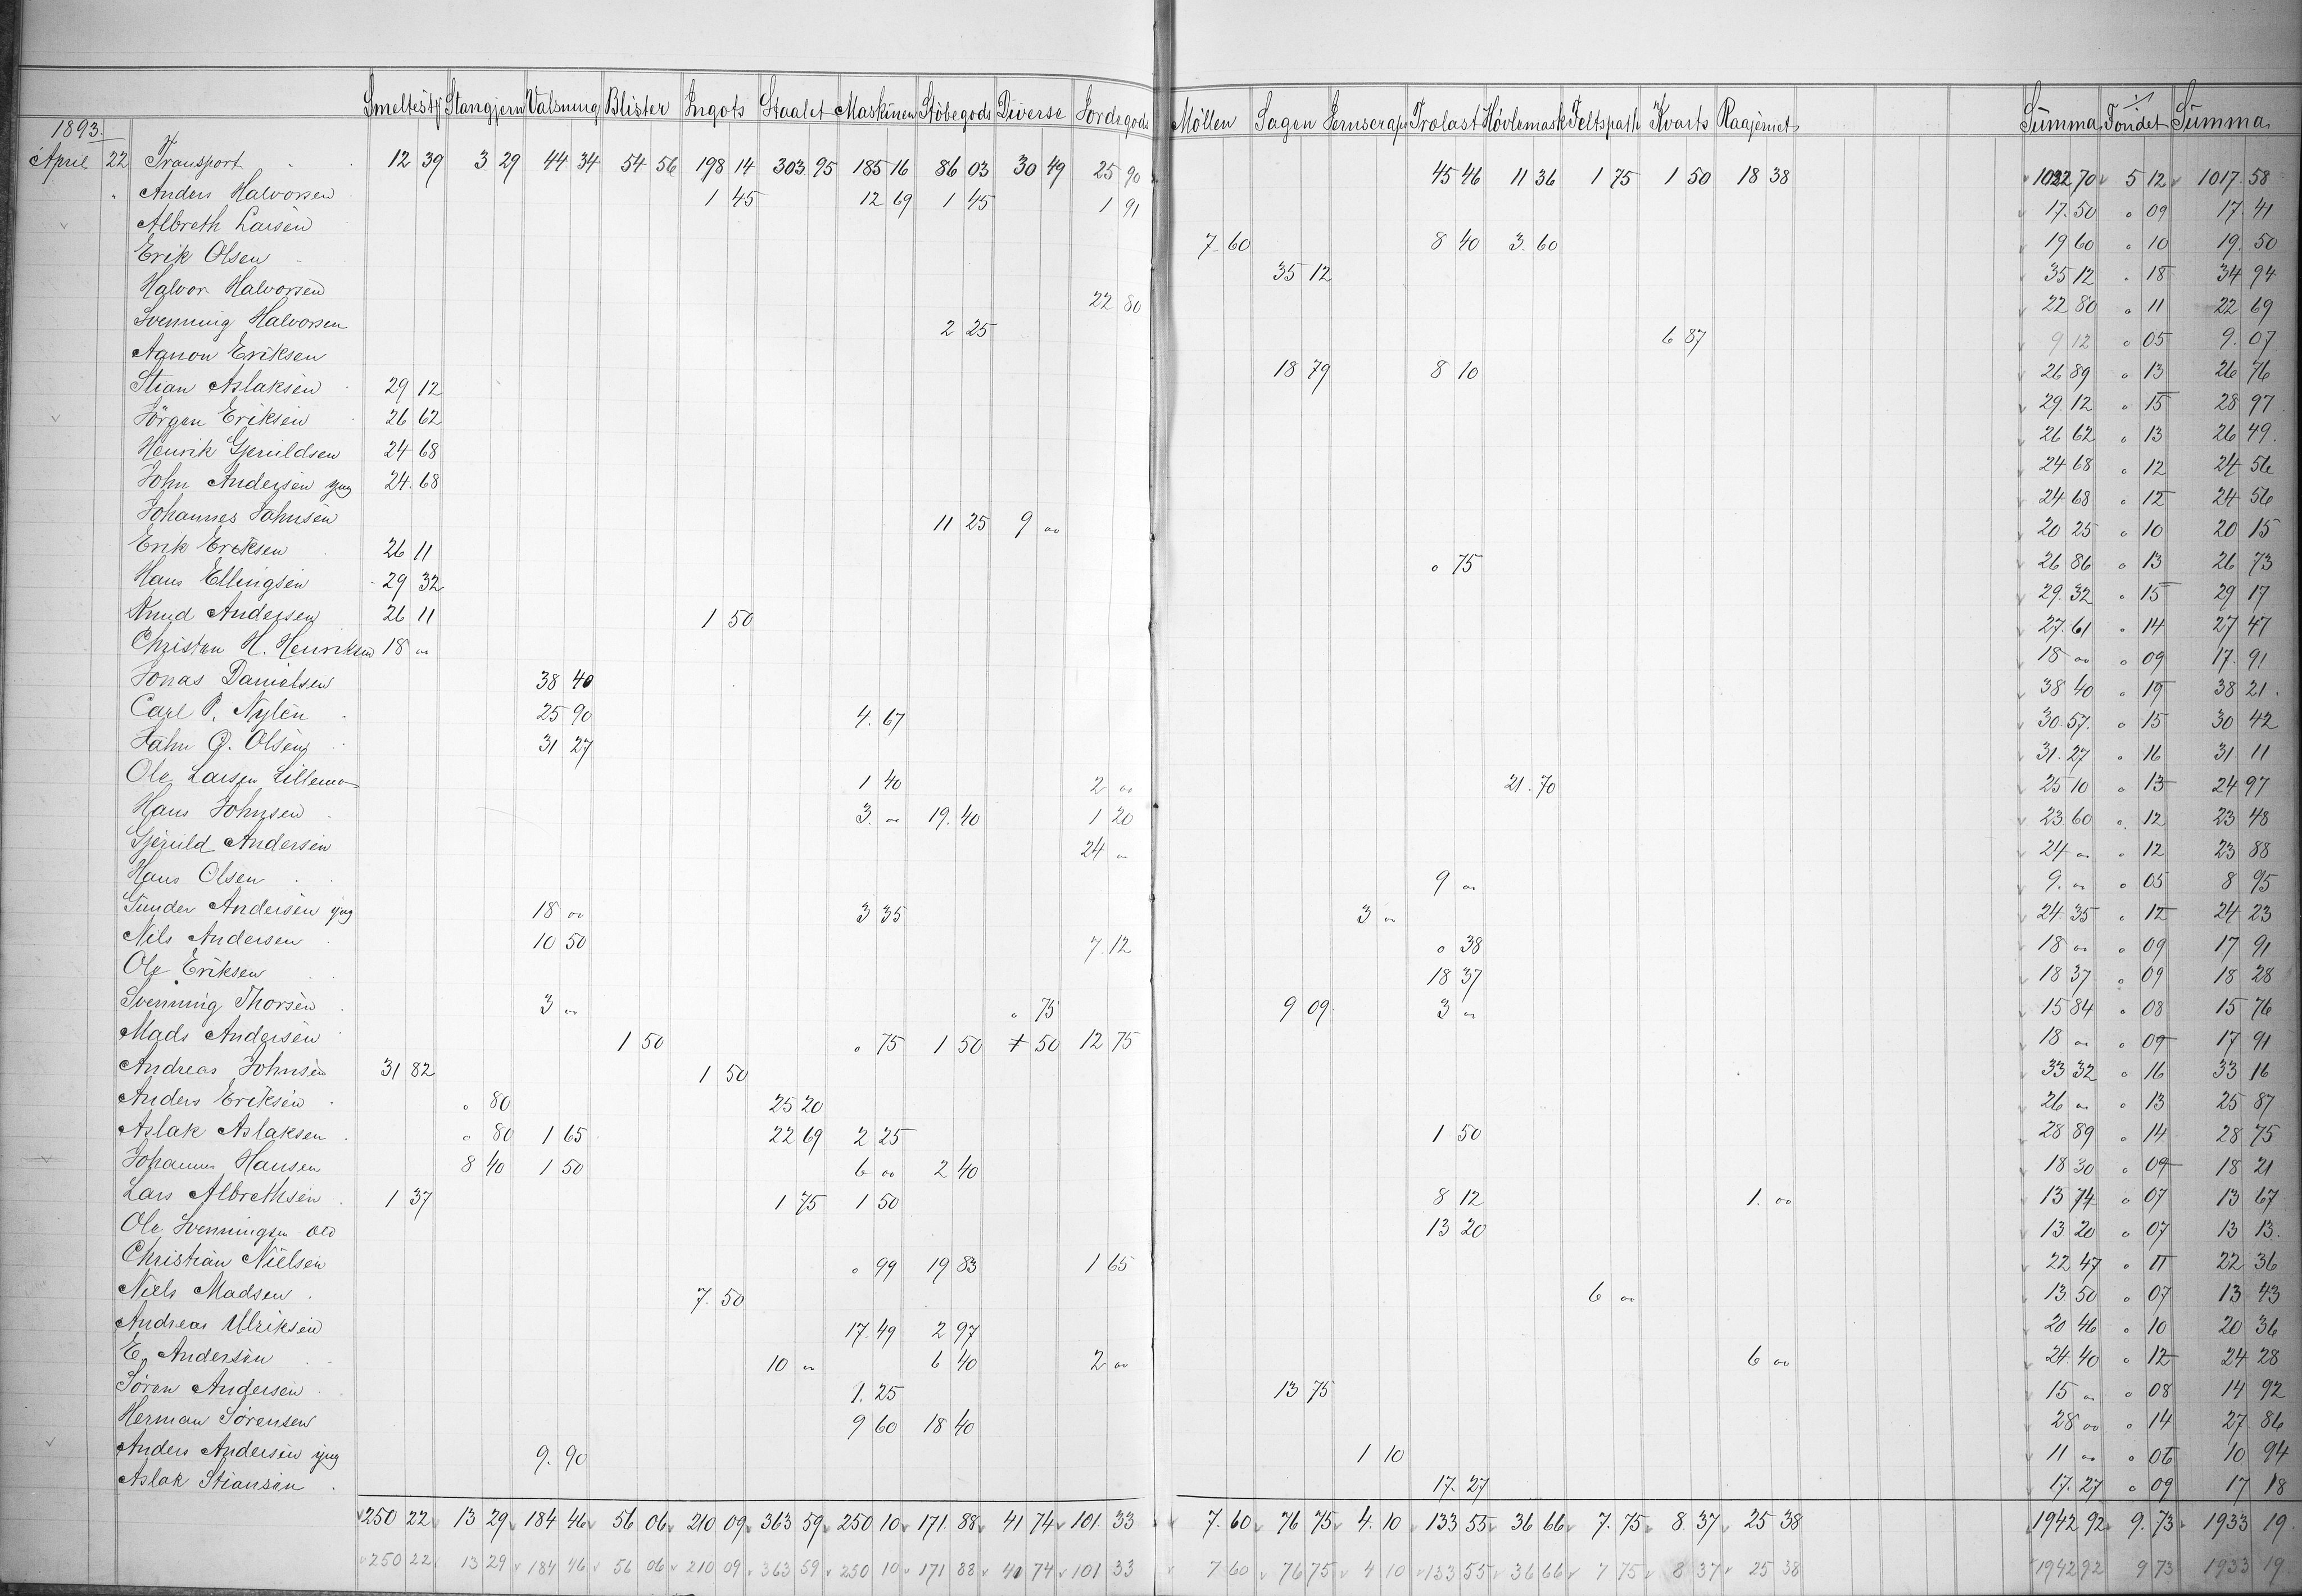 Smeltesty Stangjern Valsning Blister Ingots Staalet Maskinen Støbegods Diverse Jordegods Möllen Sagen Jernscrap Trælast Høvlemask Feltspath Kvarts Raajernet Summa ./. Fondet Summa
1893.
April 22 Transport 12 39 3 29 44 34 54 56 198 14 303 95 185 16 86 03 30 49 25 90 45 46 11 36 1 75 1 50 18 38 1022 70 5 12 1017 58
" Anders Halvorsen 1 45 12 69 1 45 1 91 17.50 " 09 17 41
Albreth Larsen 7.60 8 40 3.60 19 60 " 10 19 50
Erik Olsen 35 12 35 12 " 18 34 94
Halvor Halvorsen 22 80 22 80 " 11 22 69
Svenning Halvorsen 2 25 6 87 9 12 " 05 9.07
Agnon Eriksen 18 79 8 10 26 89 " 13 26 76
Stian Aslaksen 29 12 29.12 " 15 28 97
Jörgen Eriksen 26 62 26 62 " 13 26 49.
Henrik Gjeruldsen 24 68 24 68 " 12 24 56
John Andersen yng 24.68 24 68 " 12 24 56
Johannes Johnsen 11 25 9 " 20 25 " 10 20 15
Erik Eriksen 26 11 " 75 26 86 " 13 26 73
Hans Ellingsen 29 32 29.32 " 15 29 17
Knud Andersen 26 11 1 50 27.61 " 14 27 47
Christen H. Henriksen 18 " 18 " " 09 17.91
Jonas Danielsen 38 40 38 40 " 19 38 21.
Carl P. Nylén 25 90 4.67 30.57. " 15 30 42
Jahn O. Olsen 31 27 31.27 " 16 31 11
Ole Larsen Lillemo 1 40 2 " 21.70 25 10 " 13 24 97
Hans Johnsen 3. " 19.40 1 20 23.60 " 12 23 48
Gjeruld Andersen 24 " 24 " " 12 23 88
Hans Olsen 9 " 9. " " 05 8 95
Gunder Andersen yng 18 " 3 35 3 " 24 35 " 12 24 23
Nils Andersen 10 50 7.12 " 38 18 " " 09 17 91
Ole Eriksen 18 37 18 37 " 09 18 28
Svenning Thorsen 3 " " 75 9 09 3 " 15 84 " 08 15 76
Mads Andersen 1 50 " 75 1 50 50 12 75 18 " " 09 17 91
Andreas Johnsen 31 82 1 50 33 32 " 16 33 16
Anders Eriksen " 80 25 20 26 " " 13 25 87
Aslak Aslaksen " 80 1 65 22 69 2 25 1 50 28 89 " 14 28 75
Johannes Hansen 8 40 1 50 6 " 2 40 18 30 " 09 18 21
Lars Albrethsen 1 37 1 75 1 50 8 12 1. " 13 74 " 07 13 67
Ole Svenningsen 13 20 13 20 " 07 13 13.
Christian Nielsen " 99 19 83 1 65 22 47 " 11 22 36
Niels Madsen 7.50 6 " 13 50 " 07 13 43
Andreas Ulriksen 17.49 2 97 20 46 " 10 20 36
E. Andersen 10 " 6 40 2 " 6 " 24.40 " 12 24 28
Sören Andersen 1.25 13 75 15 " " 08 14 92
Herman Sørensen 9 60 18 40 28 " " 14 27 86
Anders Andersen yng 9.90 1 10 11 " " 06 10 94
Aslak Stiansen 17.27 17.27 " 09 17 18
250 22 13 29 184 46 56 06 210 09 363 59 250 10 171.88 41 74 101.33 7.60 76 75 4.10 133 55 36 66 7.75 8.37 25 38 1942 92 9.73 1933 19.
250 22 13 29 184 46 56 06 210 09 363 59 250 10 171 88 41 74 101 33 7 60 76 75 4 10 133 55 36 66 7 75 8 37 25 38 1942 92 9 73 1933 19